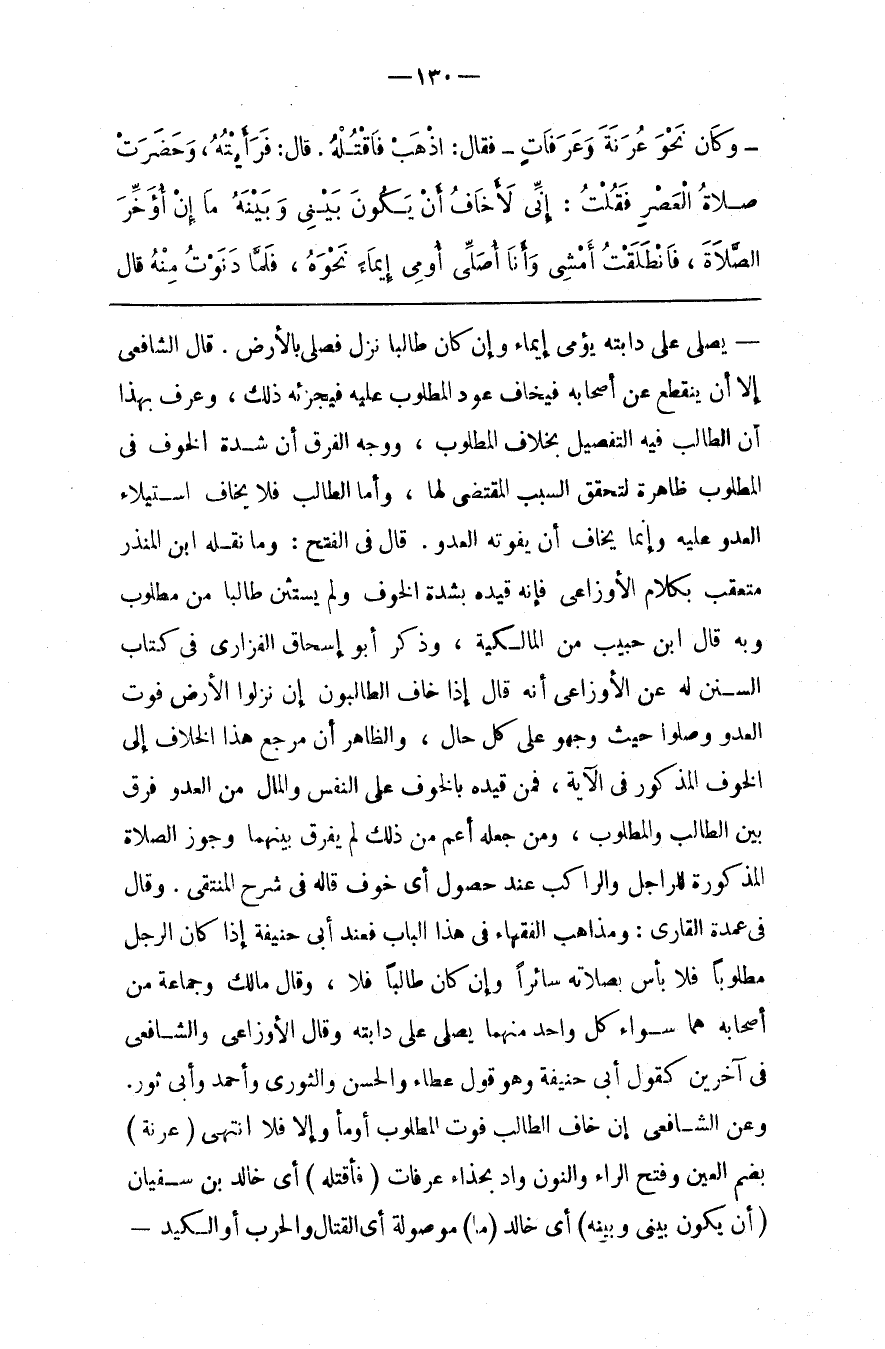 — ١٣٠ —
ـ وكَان نَحْوَ عُرَنَةَ وَعَرَفَاتٍ ـ فقال: اذْهَبْ فَاقْتُلْهُ. قال: فَرَأَيْتُهُ، وَحَضَرَتْ
صلاةُ الْعَصْرِ فَقُلْتُ: إِنِّى لَأَخَافُ أَنْ يَكُونَ بَيْنِى وَبَيْنَهُ مَا إِنْ أُؤَخِّرَ
الصَّلَاةَ، فَانْطَلَقْتُ أَمْشِى وَأَنَا أُصَلِّى أُومِى إِيمَاءً نَحْوَهُ، فَلَمَّا دَنَوْتُ مِنْهُ قال
— يصلى على دابته يؤمى إيماء وإن كان طالبا نزل فصلى بالأرض. قال الشافعى
إلا أن ينقطع عن أصحابه فيخاف عود المطلوب عليه فيجزئه ذلك، وعرف بهذا
أن الطالب فيه التفصيل بخلاف المطلوب، ووجه الفرق أن شدة الخوف فى
المطلوب ظاهرة لتحقق السبب المقتضى لها، وأما الطالب فلا يخاف استيلاء
العدو عليه وإنما يخاف أن يفوته العدو. قال فى الفتح: وما نقله ابن المنذر
متعقب بكلام الأوزاعى فإنه قيده بشدة الخوف ولم يستثن طالبا من مطلوب
وبه قال ابن حبيب من المالكية، وذكر أبو إسحاق الفزارى فى كتاب
السنن له عن الأوزاعى أنه قال إذا خاف الطالبون إن نزلوا الأرض فوت
العدو وصلوا حيث وجهو على كل حال، والظاهر أن مرجع هذا الخلاف إلى
الخوف المذكور فى الآية، فمن قيده بالخوف على النفس والمال من العدو فرق
بين الطالب والمطلوب، ومن جعله أعم من ذلك لم يفرق بينهما وجوز الصلاة
المذكورة للراجل والراكب عند حصول أى خوف قاله فى شرح المنتقى. وقال
فى عمدة القارى: ومذاهب الفقهاء فى هذا الباب فعند أبى حنيفة إذا كان الرجل
مطلوباً فلا بأس بصلاته سائراً وإن كان طالباً فلا، وقال مالك وجماعة من
أصحابه هما سواء كل واحد منهما يصلى على دابته وقال الأوزاعى والشافعى
فى آخرين كقول أبى حنيفة وهو قول عطاء والحسن والثورى وأحمد وأبى ثور.
وعن الشافعى إن خاف الطالب فوت المطلوب أومأ وإلا فلا انتهى (عرنة)
بضم العين وفتح الراء والنون واد بحذاء عرفات (فأقتله) أى خالد بن سفيان
(أن يكون بينى وبينه) أى خالد (ما) موصولة أى القتال والحرب أو الكيد —